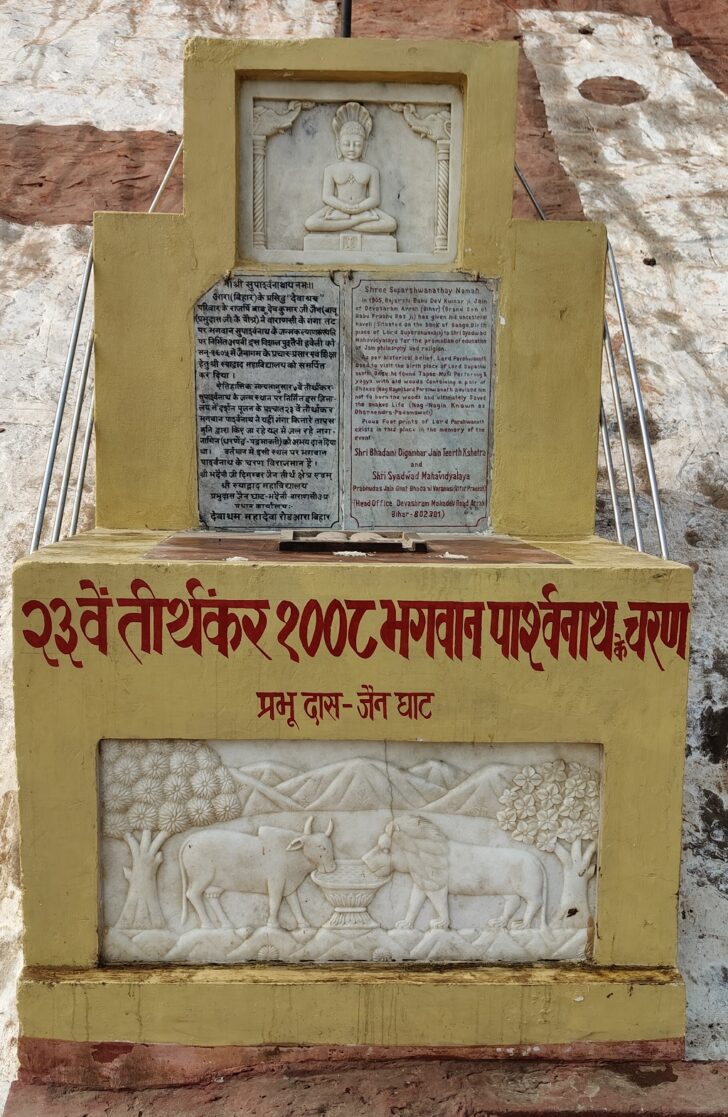 श्री सुपार्श्वनाथाय नमः।
आरा(बिहार)के प्रसिद्ध "देवाश्रम"
परिवार के राजर्षि बाबू देवकुमार जी जैन(बाबू
प्रभुदास जी के पौत्र) ने वाराणसी के गंगा तट
पर भगवान सुपार्श्वनाथ के जन्मकल्याणक स्थल
पर निर्मित अपनी इस विशाल पुश्तैनी हवेली को
सन्-१९०५ में जैनागम के प्रचार-प्रसार एवं शिक्षा
हेतु श्री स्याद्वाद महाविद्यालय को समर्पित
कर दिया।
ऐतिहासिक मान्यतानुसार ७वें तीर्थंकर
सुपार्श्वनाथ के जन्म स्थान पर निर्मित इस जिना-
लय में दर्शन पूजन के पश्चात २३ वें तीर्थंकर
भगवान पार्श्वनाथ ने यहीं गंगा किनारे तापस
मुनि द्वारा किए जा रहे यज्ञ में जल रहे नाग-
नागिन (धरणेन्द्र-पद्मावती) को अभय दान दिया
था। वर्तमान में इसी स्थान पर भगवान
पार्श्वनाथ के चरण विराजमान हैं।
श्री भदैनी जी दिगम्बर जैन तीर्थ क्षेत्र एवम्
श्री स्याद्वाद महाविद्यालय
प्रभुदास जैन घाट-भदैनी वाराणसी उ.प्र
प्रधान कार्यालय:-
देवाश्रम महादेवा रोड आरा बिहार
Shree Suparshwanathay Namah
In 1905, Rajarshi Babu Dev Kumar Ji Jain
of Devashram Arrah (Bihar) (Grand Son of
Babu Prabhu Das Ji) has given his ancestral
haveli (Situated on the bank of Ganga, Birth
place of Lord Suparshwanath) to Shri Syadwad
Mahavidyalaya for the promotion of education
of Jain philosophy and religion.
As per historical belief, Lord Parshwanath
Used to visit the birth place of Lord Supatha
nath. Once he found Tapas Muni Perforing a
yagya with old woods Containing a pair of
Snakes (Nag Nagin) Lord Parshwanath advised him
not to burn the woods and ultimately Saved
the Snakes Life (Nag-Nagin Known as
Dharnendra-Padmawati)
Pious Foot prints of Lord Parshwanath
exists in this place in the memory of the
event
Shri Bhadaini Digambar Jain Teerth Kshetra
and
Shri Syadwad Mahavidyalaya
Prabhudas Jain Ghat Bhadaini Varanasi (Uttar Pradesh)
(Head Office, Devashram Mahadev Road Arrah
Bihar-802301)
२३वें तीर्थंकर १००८ भगवान पार्श्वनाथ के चरण
प्रभू दास-जैन घाट